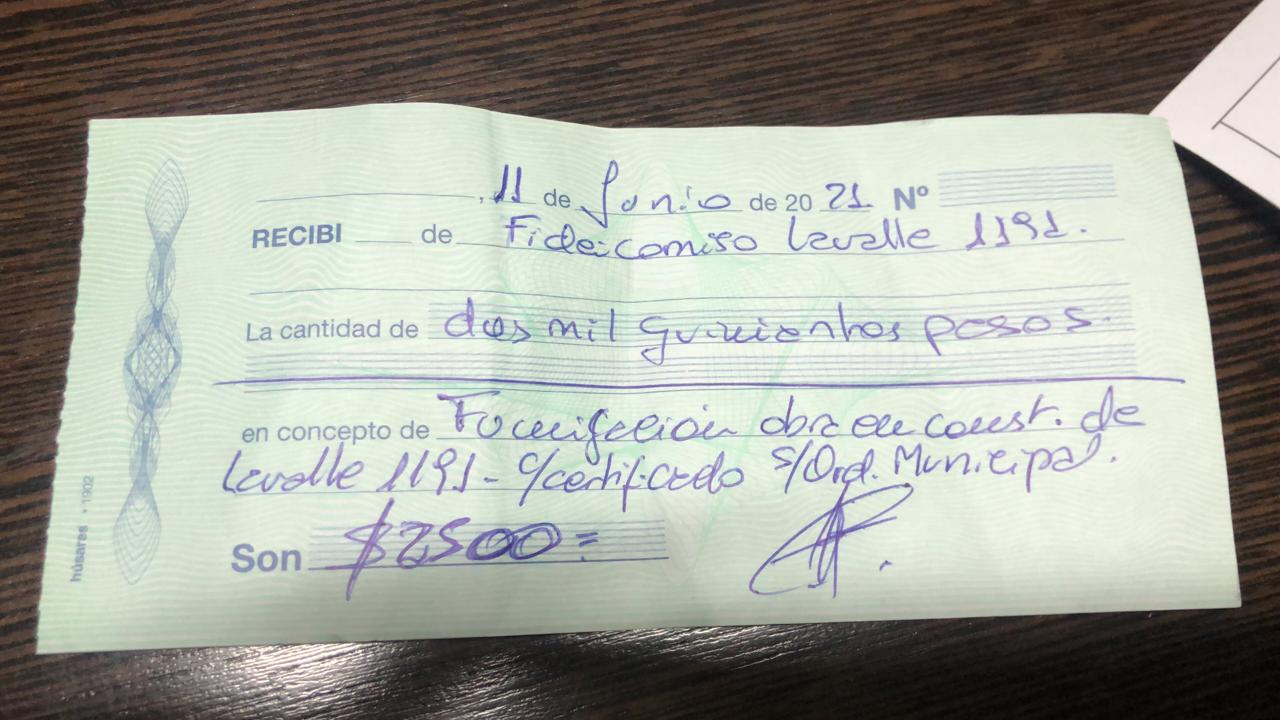 11 de Junio de 2021 Nº
RECIBI de Fideicomiso Lavalle 1191.
La cantidad de dos mil quinientos pesos.
en concepto de Fumigación obra en const. de
Lavalle 1191 - c/certificado s/Ord. Municipal.
Son $2500=
húsares · 1902